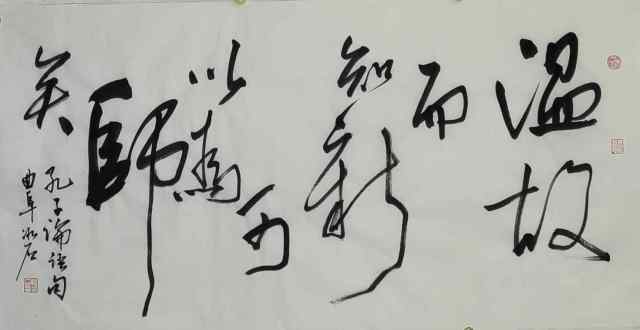 温故
而
知新
可
以為
師
矣
孔子論語句
曲阜冰石